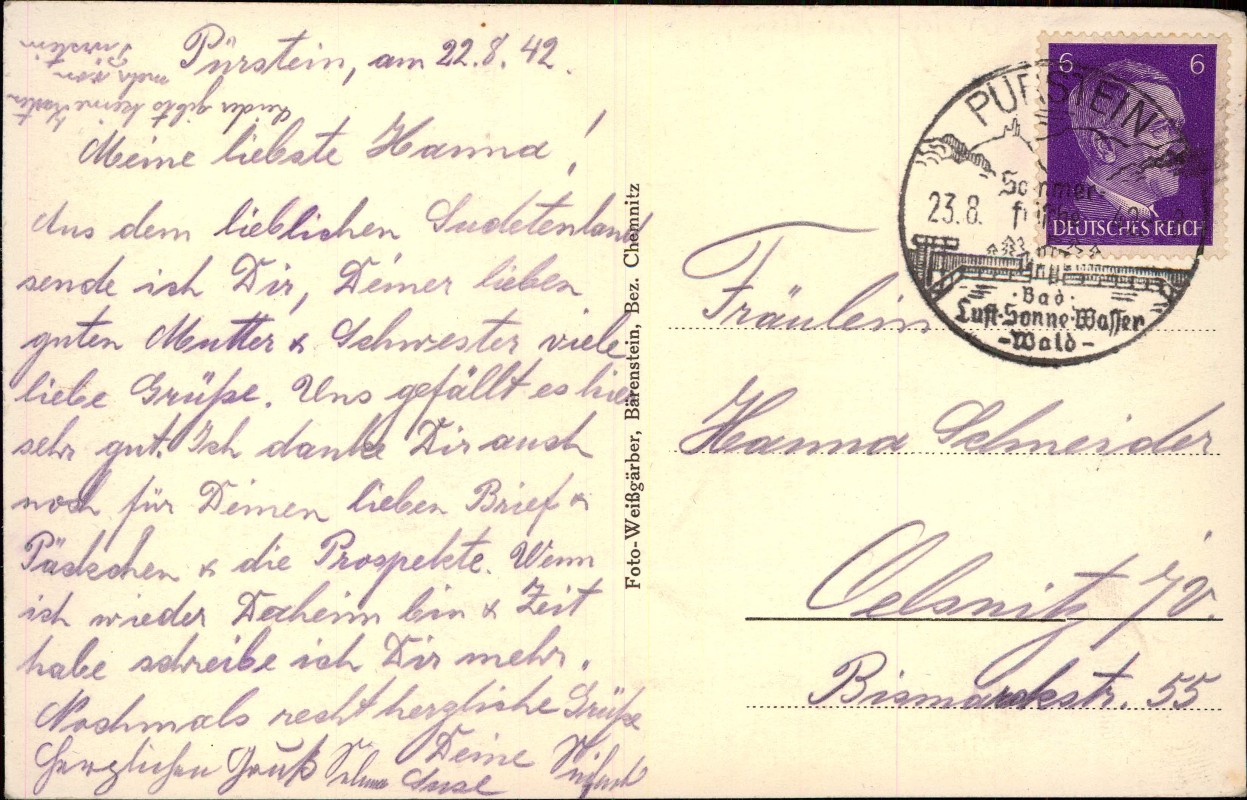 Pürstein, am 22.8.42.
Leider gibts keine Karten
mehr von
Pürstein
Meine liebste Hanna!
Aus dem lieblichen Sudetenland
sende ich Dir, Deiner lieben
guten Mutter & Schwester viele
liebe Grüße. Uns gefällt es hier
sehr gut. Ich danke Dir auch
noch für Deinen lieben Brief &
Päckchen & die Prospekte. Wenn
ich wieder Daheim bin & Zeit
habe schreibe ich Dir mehr.
Nochmals recht herzliche Grüße
Deine
Suse
Herzlichen Gruß
Foto-Weißgärber, Bärenstein, Bez. Chemnitz
6 6
DEUTSCHES REICH
PÜRSTEIN
Sommer-
23.8. frische 42
Bad
Luft-Sonne-Wasser
-Wald-
Fräulein
Hanna Schneider
Oelsnitz i/V.
Bismarckstr. 55